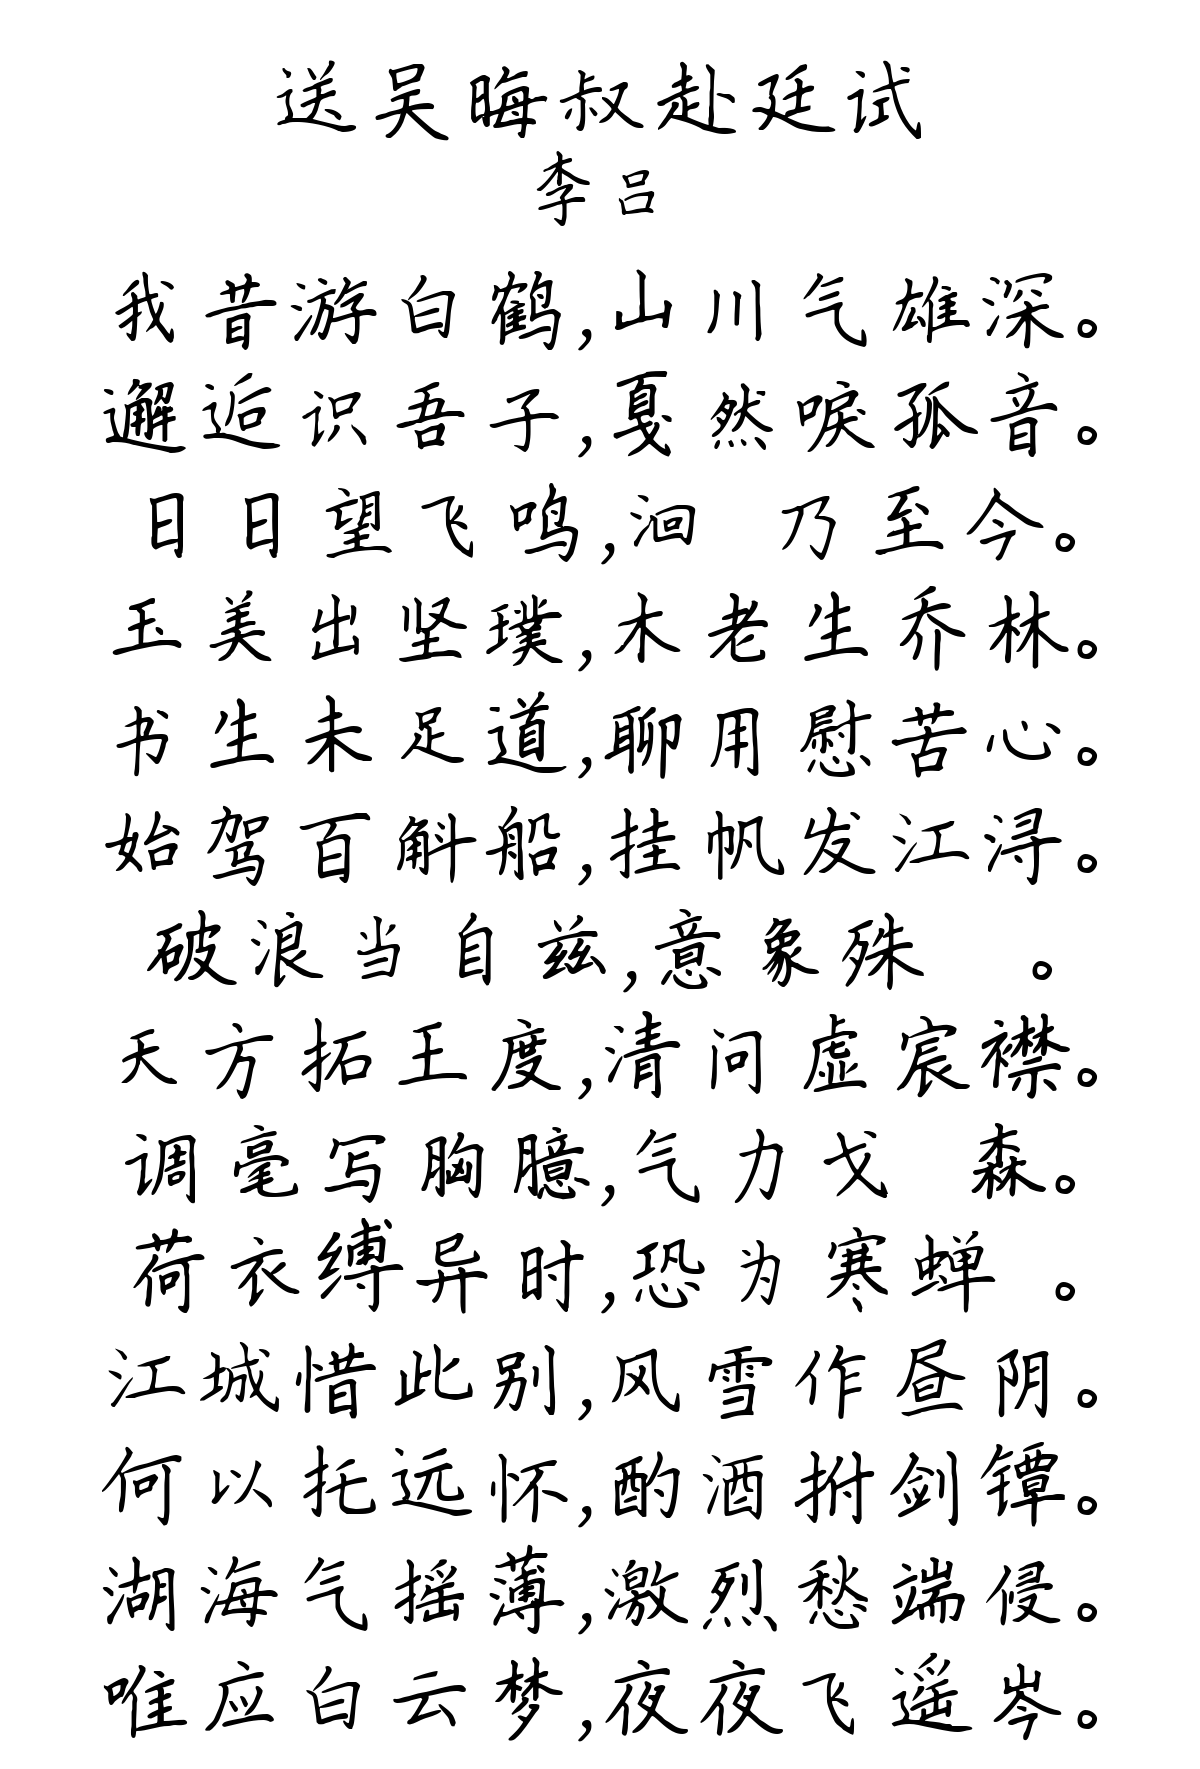 送吴晦叔赴廷试
李吕
我昔游白鹤,山川气雄深。
邂逅识吾子,戛然唳孤音。
日日望飞鸣,洄 乃至今。
玉美出坚璞,木老生乔林。
书生未足道,聊用慰苦心。
始驾百斛船,挂帆发江浔。
破浪当自兹,意象殊 。
天方拓王度,清问虚宸襟。
调毫写胸臆,气力戈 森。
荷衣缚异时,恐为寒蝉 。
江城惜此别,风雪作昼阴。
何以托远怀,酌酒拊剑镡。
湖海气摇薄,激烈愁端侵。
唯应白云梦,夜夜飞遥岑。